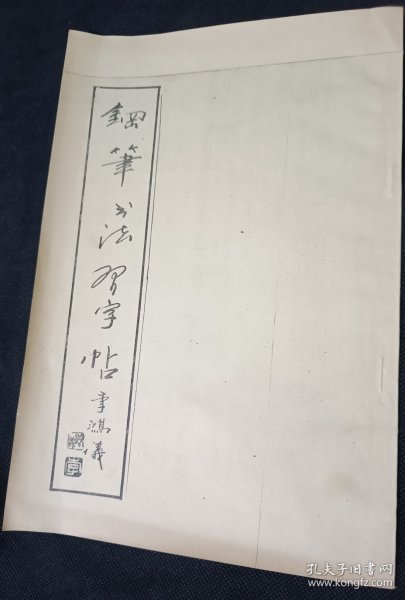 鋼筆书法習字帖
李鴻儀
孔夫子旧书网
www.kongfz.com